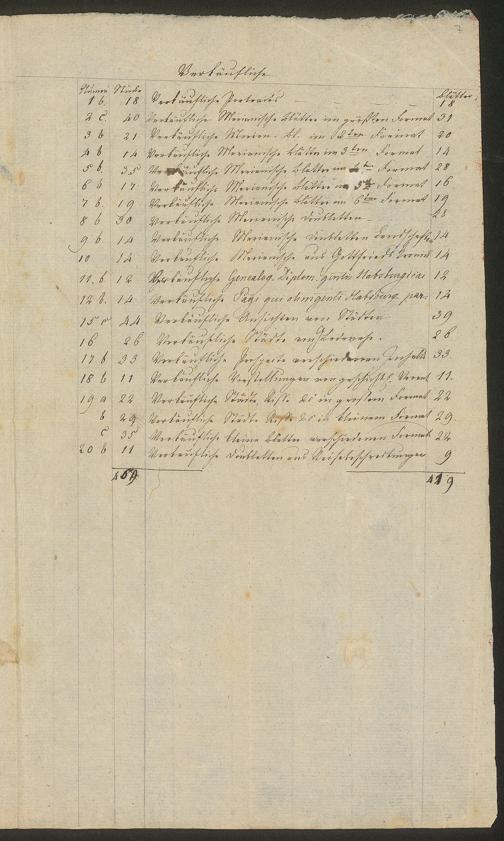 Verkäufliche
Numer Stücke Blätter
1 b. 18 Verkäufliche Portraits — 18
2 c. 40 Verkäufliche Merianische Blätter im größten Format 31
3 b 21 Verkäufliche Merian. Bl. im 2ten Format 20
4 b 14 Verkäufliche Merianische Blätter im 3ten Format 14
5 b. 35 Verkäufliche Merianische Blätter im 4ten Format 28
6 b 17 Verkäufliche Merianische Blätter im 5ten Format 16
7 b. 19 Verkäufliche Merianische Blätter im 6ten Format 19
8 b 30 Verkäufliche Merianische Doubletten
9 b 14 Verkäufliche Merianische Doubletten Landschaften 14
10 14 Verkäufliche Merianische aus Gottfrieds Cronik 14
11. b 12 Verkäufliche Genealog. Diplom. gentis Habsburgicae 12
12 b. 14 Verkäufliche Pagi Habsburg. 14
15 44 Verkäufliche Ansichten von Städten 39
16 26 Verkäufliche Städte 26
17 b 33 Verkäufliche Prospecte verschiedenen Inhalts 33.
18 b 11 Verkäufliche Vorstellungen von 11.
19 a 22 Verkäufliche Städte in großem Format 22
b 29 Verkäufliche Städte in kleinem Format 29.
c 35 Verkäufliche kleine Blätter verschiedenen Format 22
20 b 11 Verkäufliche Doubletten aus Reisebeschreibungen 9
459 419